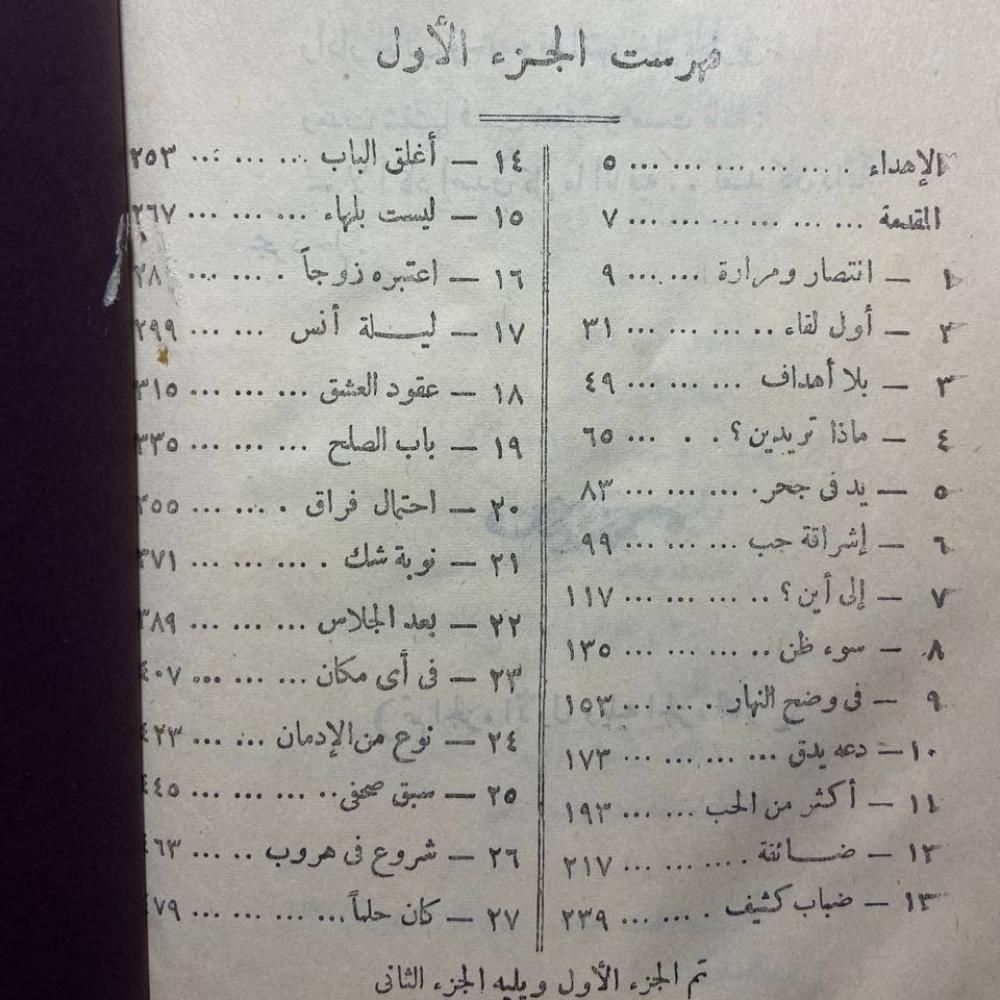 فهرست الجزء الأول
الإهداء ... ... ... ... ... ٥
المقدمة ... ... ... ... ... ٧
١ — انتصار ومرارة ... ... ٩
٢ — أول لقاء ... ... ... ٣١
٣ — بلا أهداف ... ... ... ٤٩
٤ — ماذا تريدين؟ ... ... ٦٥
٥ — يد فى جحر ... ... ... ٨٣
٦ — إشراقة حب ... ... ... ٩٩
٧ — إلى أين؟ ... ... ... ١١٧
٨ — سوء ظن ... ... ... ١٣٥
٩ — فى وضح النهار ... ... ١٥٣
١٠ — دعه يدق ... ... ... ١٧٣
١١ — أكثر من الحب ... ... ١٩٣
١٢ — ضائقة ... ... ... ٢١٧
١٣ — ضباب كثيف ... ... ٢٣٩
١٤ — أغلق الباب ... ... ... ٢٥٣
١٥ — ليست بلهاء ... ... ... ٢٦٧
١٦ — اعتبره زوجاً ... ... ...
١٧ — ليلة أنس ... ... ٢٩٩
١٨ — عقود العشق ... ... ... ٣١٥
١٩ — باب الصلح ... ... ... ٣٣٥
٢٠ — احتمال فراق ... ... ... ٣٥٥
٢١ — نوبة شك ... ... ... ٣٧١
٢٢ — بعد الجلاس ... ... ... ٣٨٩
٢٣ — فى أى مكان ... ... ... ٤٠٧
٢٤ — نوع من الإدمان ... ... ٤٢٣
٢٥ — سبق صحفى ... ... ... ٤٤٥
٢٦ — شروع فى هروب ... ... ٤٦٣
٢٧ — كان حلماً ... ... ... ... ٤٧٩
تم الجزء الأول ويليه الجزء الثانى